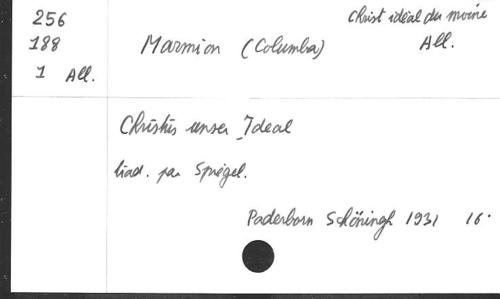 256
188
1 All.
Christ idéal du moine
All.
Marmion (Columba)
Christus unser Ideal
trad. par Spiegel.
Paderborn Schöningh 1931 16.